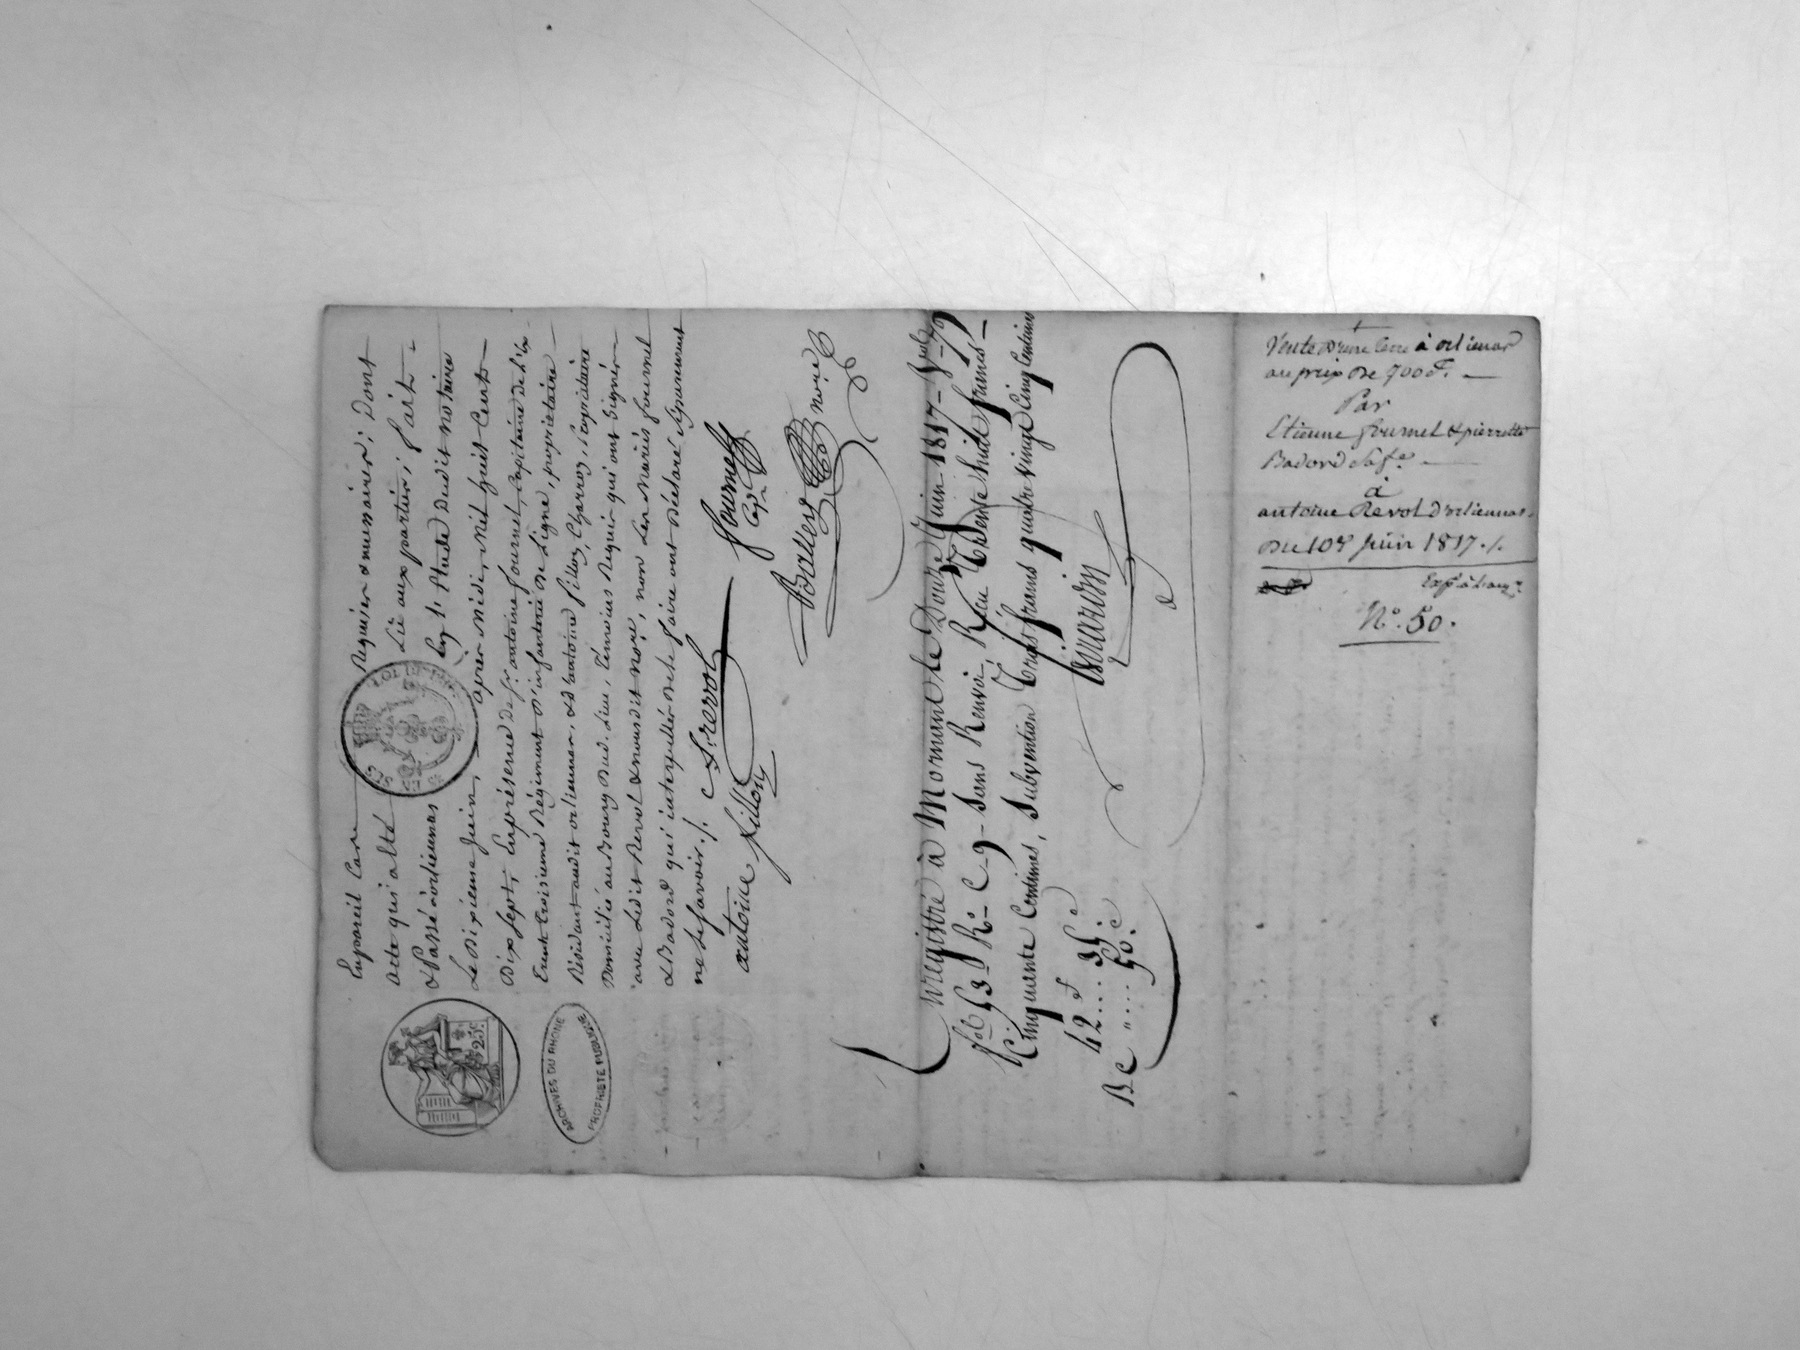 En pareil Cas Requier & nécessaire; Dont
acte qui a été Lu aux parties; fait
& Passé à orliennas En L'Etude Dudit notaire
Le Dixieme Juin, après Midi, Mil huit Cent
Dix sept; En présence de Sr. antoine fournel, Capitaine de l'Ex
Trente troisieme Régiment D'infanterie de Ligne, proprietaire
Résidant audit orliennas, & d'antoine fillon, Charron, Proprietaire
Domicilié au Bourg dud. Lieu, Témoins Requis qui ont Signé
avec Ledit Revol & nousdit nore, non Les Mariés fournel
& Badord qui interpellés de le faire ont Déclaré séparément
ne le savoir./.
A. revol
fournel
Cap.
antoine fillon
nore
Enregistré à Mornant le Douze Juin 1817
fol. 63 Ro C. 9 Sans Renvoi, Reçu Trente huit francs
Cinquante Centimes, Subvention Trois francs quatre vingt Cinq Centimes
42 f 35 c
B c " 50 c
ARCHIVES DU RHONE
PROPRIETE PUBLIQUE
25c.
Vente D'une terre à orliennas
au prix De 700 f.
Par
Etienne fournel & pierrette
Badord sa fe.
à
antoine Revol D'orliennas.
Du 10e Juin 1817./.
No. 50.